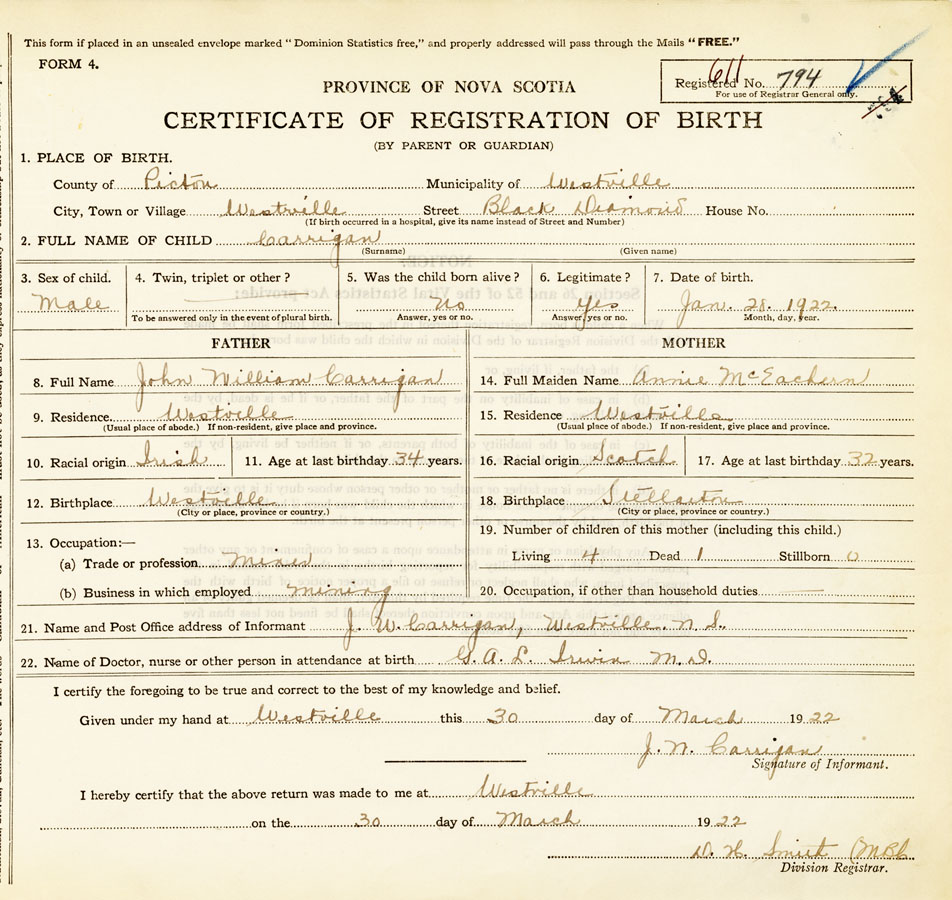 This form if placed in an unsealed envelope marked "Dominion Statistics free," and properly addressed will pass through the Mails "FREE."
FORM 4.
611
Registered No. 794
For use of Registrar General only.
PROVINCE OF NOVA SCOTIA
CERTIFICATE OF REGISTRATION OF BIRTH
(BY PARENT OR GUARDIAN)
1. PLACE OF BIRTH.
County of Pictou Municipality of Westville
City, Town or Village Westville Street Black Diamond House No.
(If birth occurred in a hospital, give its name instead of Street and Number)
2. FULL NAME OF CHILD Carrigan
(Surname) (Given name)
3. Sex of child. 4. Twin, triplet or other? 5. Was the child born alive? 6. Legitimate? 7. Date of birth.
Male no Yes Jan. 28. 1922.
To be answered only in the event of plural birth. Answer, yes or no. Answer, yes or no. Month, day, year.
FATHER MOTHER
8. Full Name John William Carrigan 14. Full Maiden Name Annie McEachern
9. Residence Westville 15. Residence Westville
(Usual place of abode.) If non-resident, give place and province. (Usual place of abode.) If non-resident, give place and province.
10. Racial origin Irish 11. Age at last birthday 34 years. 16. Racial origin Scotch 17. Age at last birthday 32 years.
12. Birthplace Westville 18. Birthplace Stellarton
(City or place, province or country.) (City or place, province or country.)
19. Number of children of this mother (including this child.)
13. Occupation:—
Living 4 Dead 1 Stillborn 0
(a) Trade or profession Miner
(b) Business in which employed mining 20. Occupation, if other than household duties
21. Name and Post Office address of Informant J. W. Carrigan, Westville. N. S.
22. Name of Doctor, nurse or other person in attendance at birth G. A. L. Irwin M. D.
I certify the foregoing to be true and correct to the best of my knowledge and belief.
Given under my hand at Westville this 30 day of March 1922
J. N. Carrigan
Signature of Informant.
I hereby certify that the above return was made to me at Westville
on the 30 day of March 1922
D. H. Smith
Division Registrar.